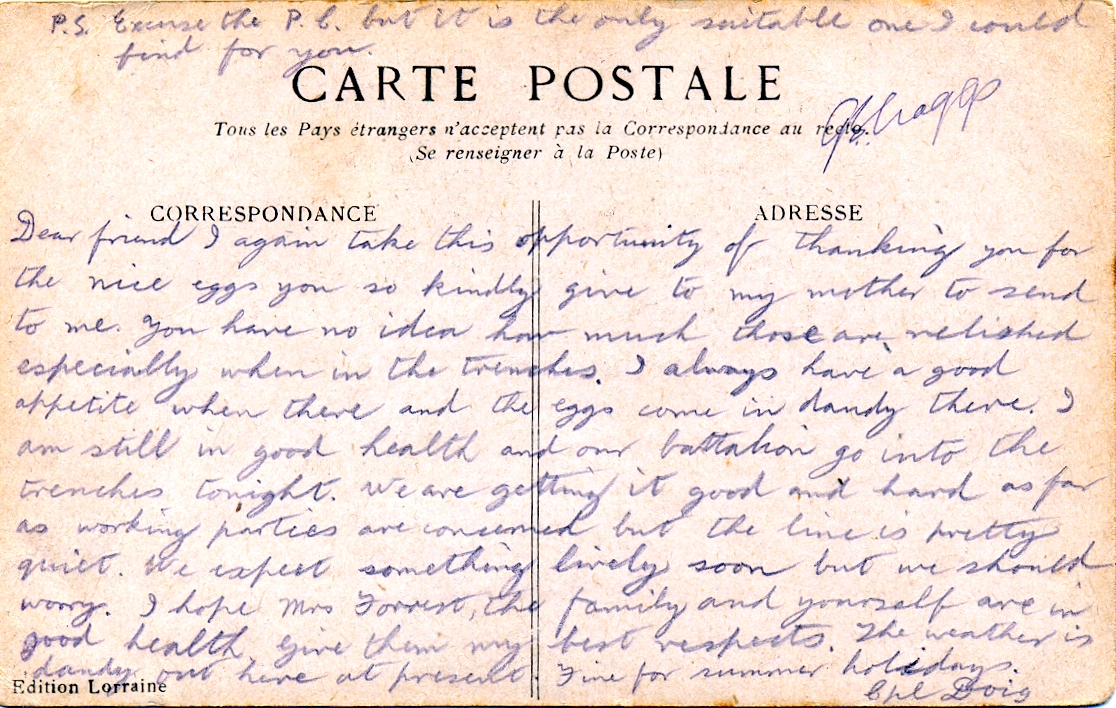 P.S. Excuse the P.C. but it is the only suitable one I could
find for you.
CARTE POSTALE
Tous les Pays étrangers n'acceptent pas la Correspondance au recto.
(Se renseigner à la Poste)
CORRESPONDANCE
ADRESSE
Dear friend I again take this opportunity of thanking you for
the nice eggs you so kindly give to my mother to send
to me. You have no idea how much those are relished
especially when in the trenches. I always have a good
appetite when there and the eggs come in dandy there. I
am still in good health and our battalion go into the
trenches tonight. We are getting it good and hard as far
as working parties are concerned but the line is pretty
quiet. We expect something lively soon but we should
worry. I hope Mrs Forrest, the family and yourself are in
good health, give them my best respects. The weather is
dandy out here at present. Fine for summer holidays.
Cpl Doig
Edition Lorraine